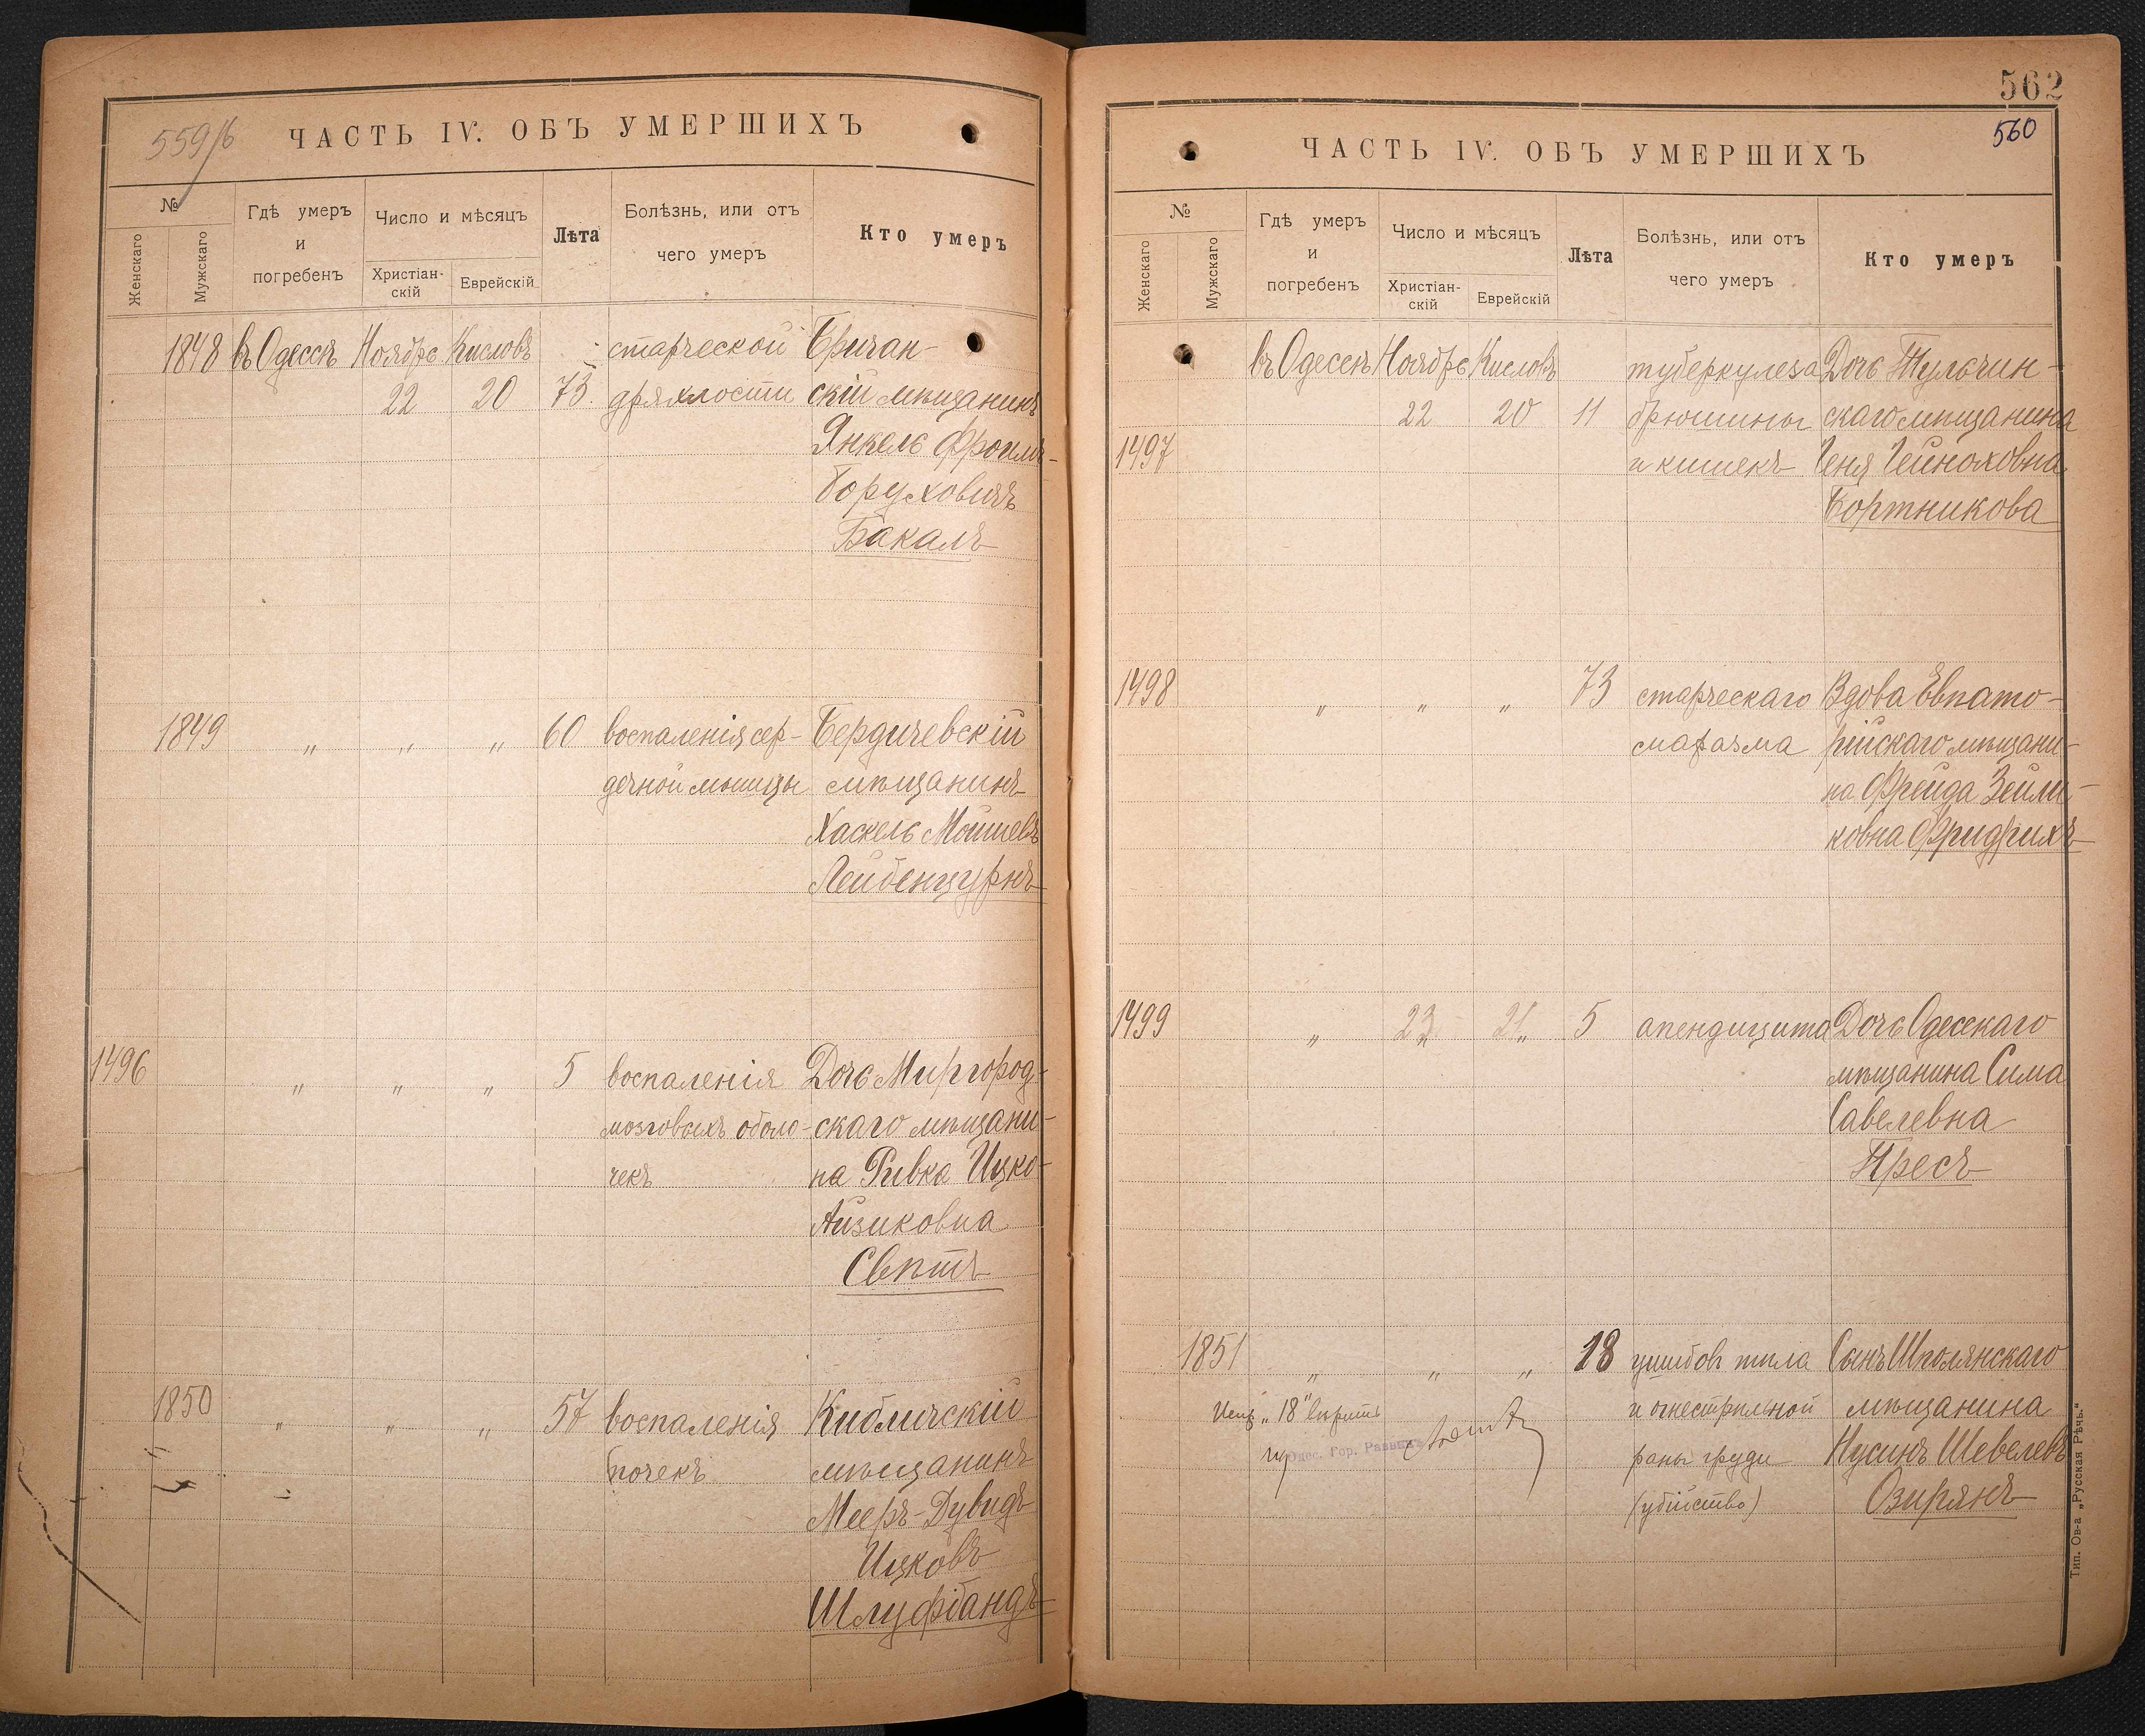 559/б
ЧАСТЬ IV. ОБЪ УМЕРШИХЪ
№
Женскаго
Мужскаго
Гдѣ умеръ
и
погребенъ
Число и мѣсяцъ
Христіан-
скій
Еврейскій
Лѣта
Болѣзнь, или отъ
чего умеръ
Кто умеръ
1848 въ Одессѣ Ноябрь Кисловъ старческой Бричан-
22 20 73. дряхлости скій мѣщанинъ
Янкель Фроимъ-
Боруховичъ
Бакалъ
1849 „ „ „ 60 воспаленія сер- Бердичевскій
дечной мышцы мѣщанинъ
Хаскель Мошкевъ
Лейбенцурнъ
1496 „ „ „ 5 воспаленія Дочь Миргород-
мозговыхъ оболо- скаго мѣщани-
чекъ на Ривка Ицко-
Айзиковна
Свѣтъ
1850 „ „ „ 57 воспаленія Кибличскій
почекъ мѣщанинъ
Мееръ-Дувидъ
Ицковъ
Шлуфбандъ
562
560
ЧАСТЬ IV. ОБЪ УМЕРШИХЪ
№
Женскаго
Мужскаго
Гдѣ умеръ
и
погребенъ
Число и мѣсяцъ
Христіан-
скій
Еврейскій
Лѣта
Болѣзнь, или отъ
чего умеръ
Кто умеръ
въ Одессѣ Ноябрь Кисловъ туберкулеза Дочь Тульчин-
22 20 11 брюшины скаго мѣщанина
1497 и кишекъ Геня Гейноховна
Бортникова
1498 „ „ „ 73 старческаго Вдова Евпато-
маразма рійскаго мѣщани-
на Фрейда Зейли-
ковна Фридрихъ
1499 „ 23 21 5 апендицита Дочь Одесскаго
мѣщанина Сима
Савелевна
Пресъ
1851 „ „ „ 18 ушибовъ тѣла Сынъ Шполянскаго
„18“ вѣрить и огнестрѣльной мѣщанина
Одес. Гор. Раввинъ раны груди Нусинъ Шевелевъ
(убійство) Озирянъ
Тип. Ов-а „Русская Рѣчь.“